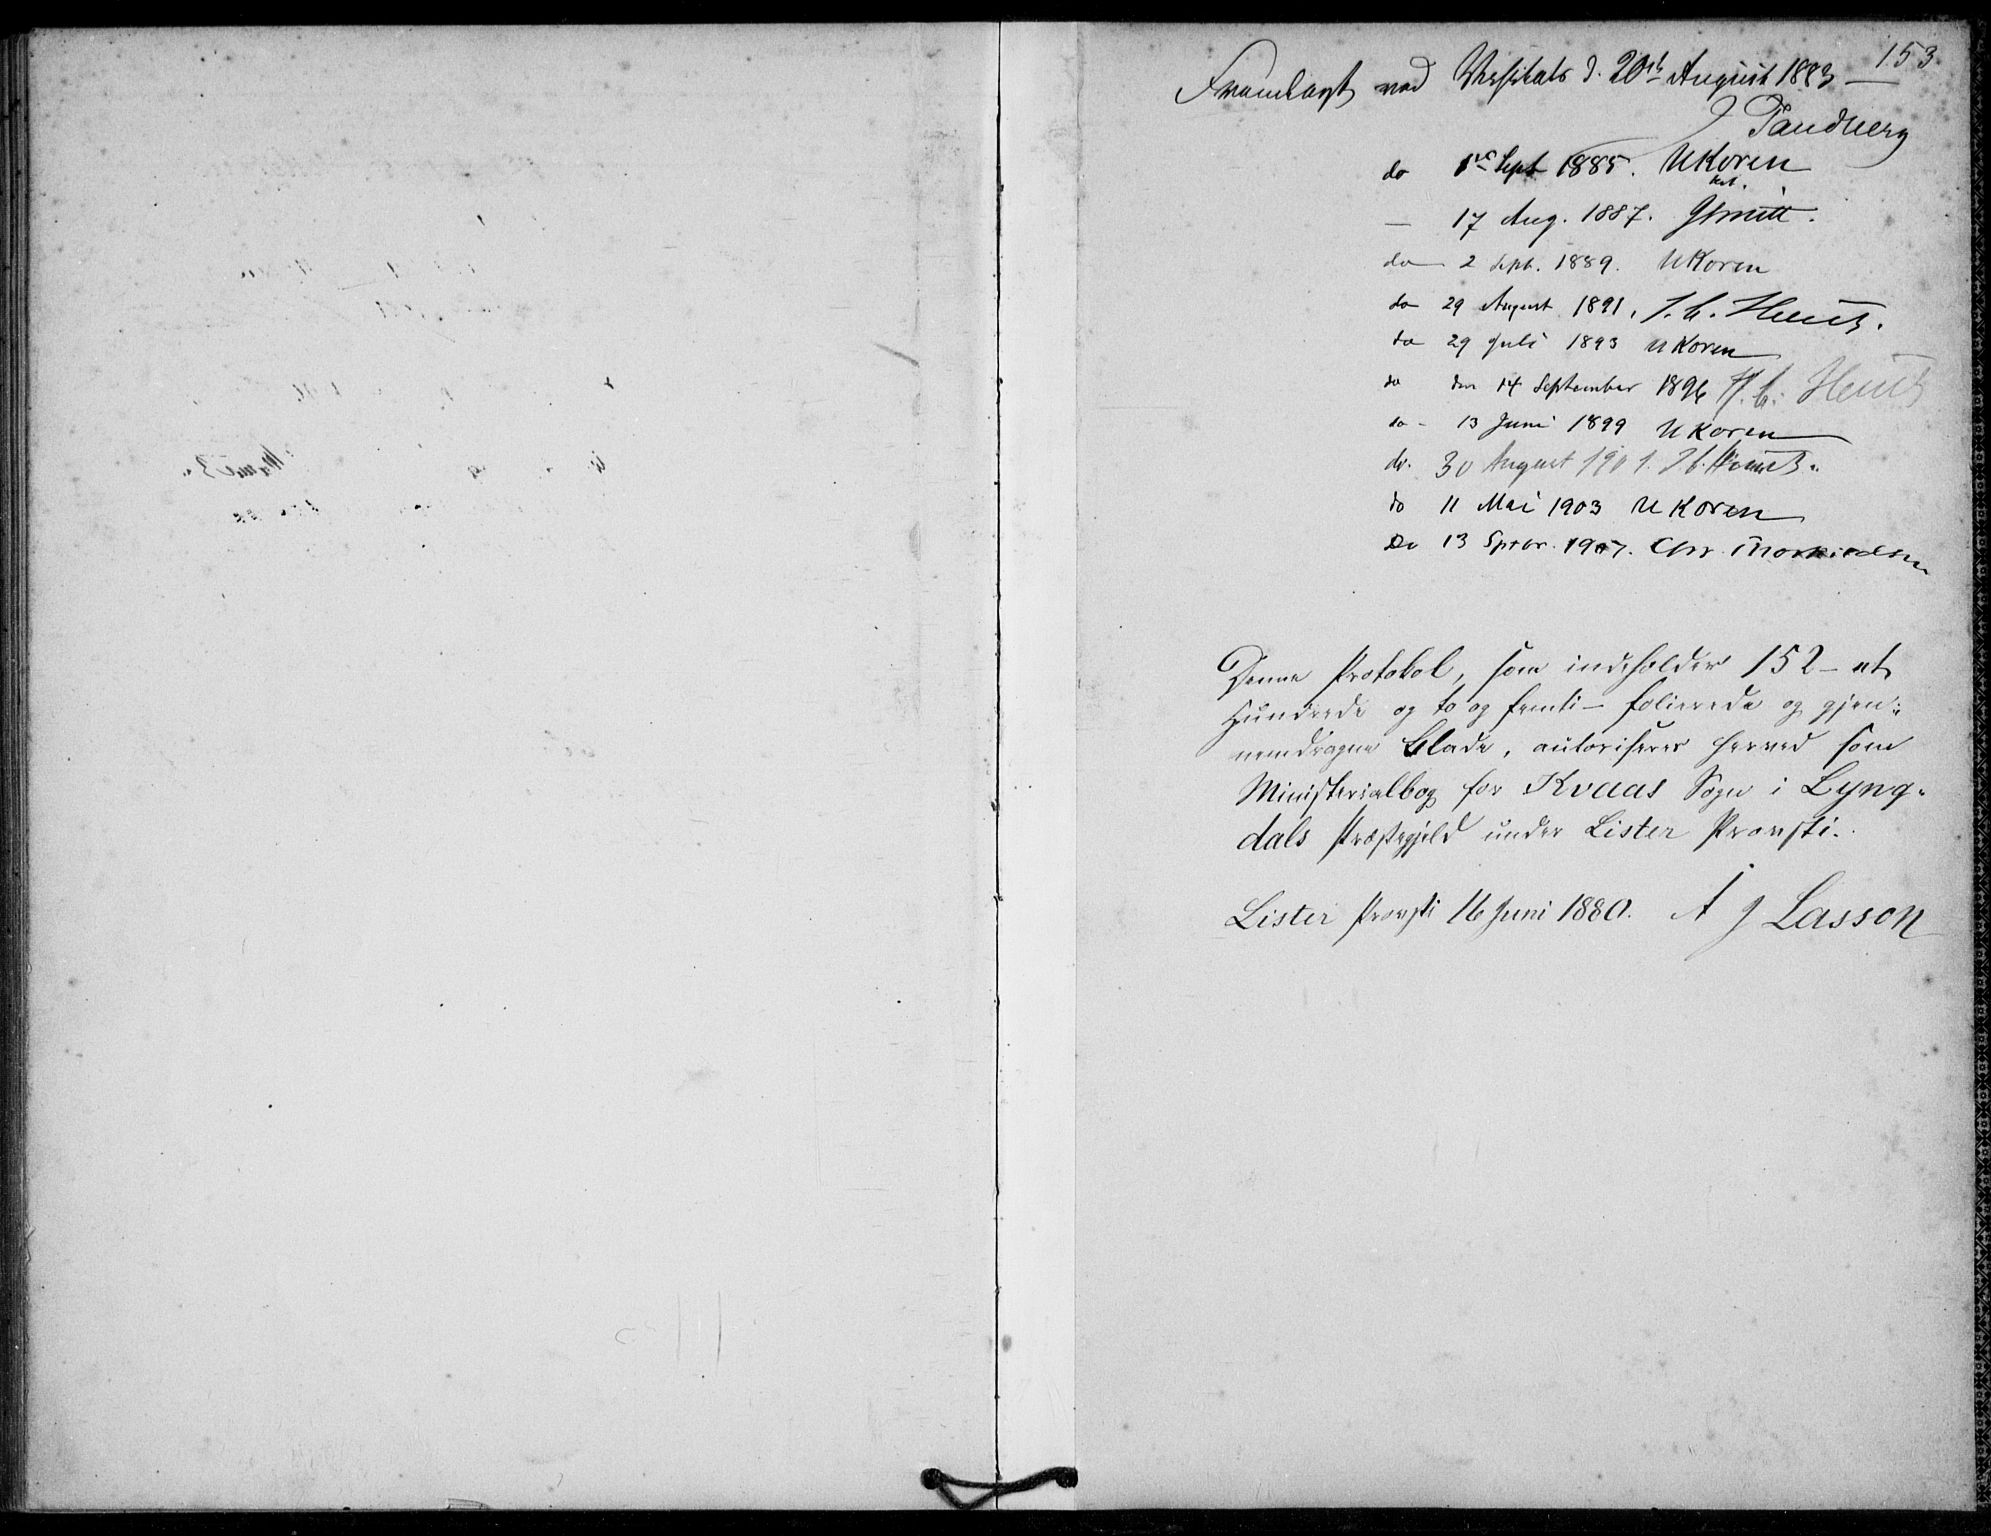 153
Fremlagt ved Visitats d. 20de August 1883 —
J Tandberg
do 1ste Sept 1885. UKoren
kst.
— 17 Aug. 1887. Smitt.
do 2 Sept. 1889. UKoren
do 29 August 1891, J. C. Heuch.
do 29 Juli 1893 UKoren
do den 14 September 1896 J. C. Heuch
do - 13 Juni 1899 UKoren
do. 30 August 1901. J C. Heuch.
do 11 Mai 1903 UKoren
Do 13 Sptbr. 1907. Chr Thorkildsen
Denne Protokol, som indeholder 152 - et
Hundrede og to og femti - folierede og gjen-
nemdragne Blade, autoriseres herved som
Ministerialbog for Kvaas Sogn i Lyng-
dals Præstegjeld under Lister Provsti.
Lister Provsti 16 Juni 1880. A J Lasson